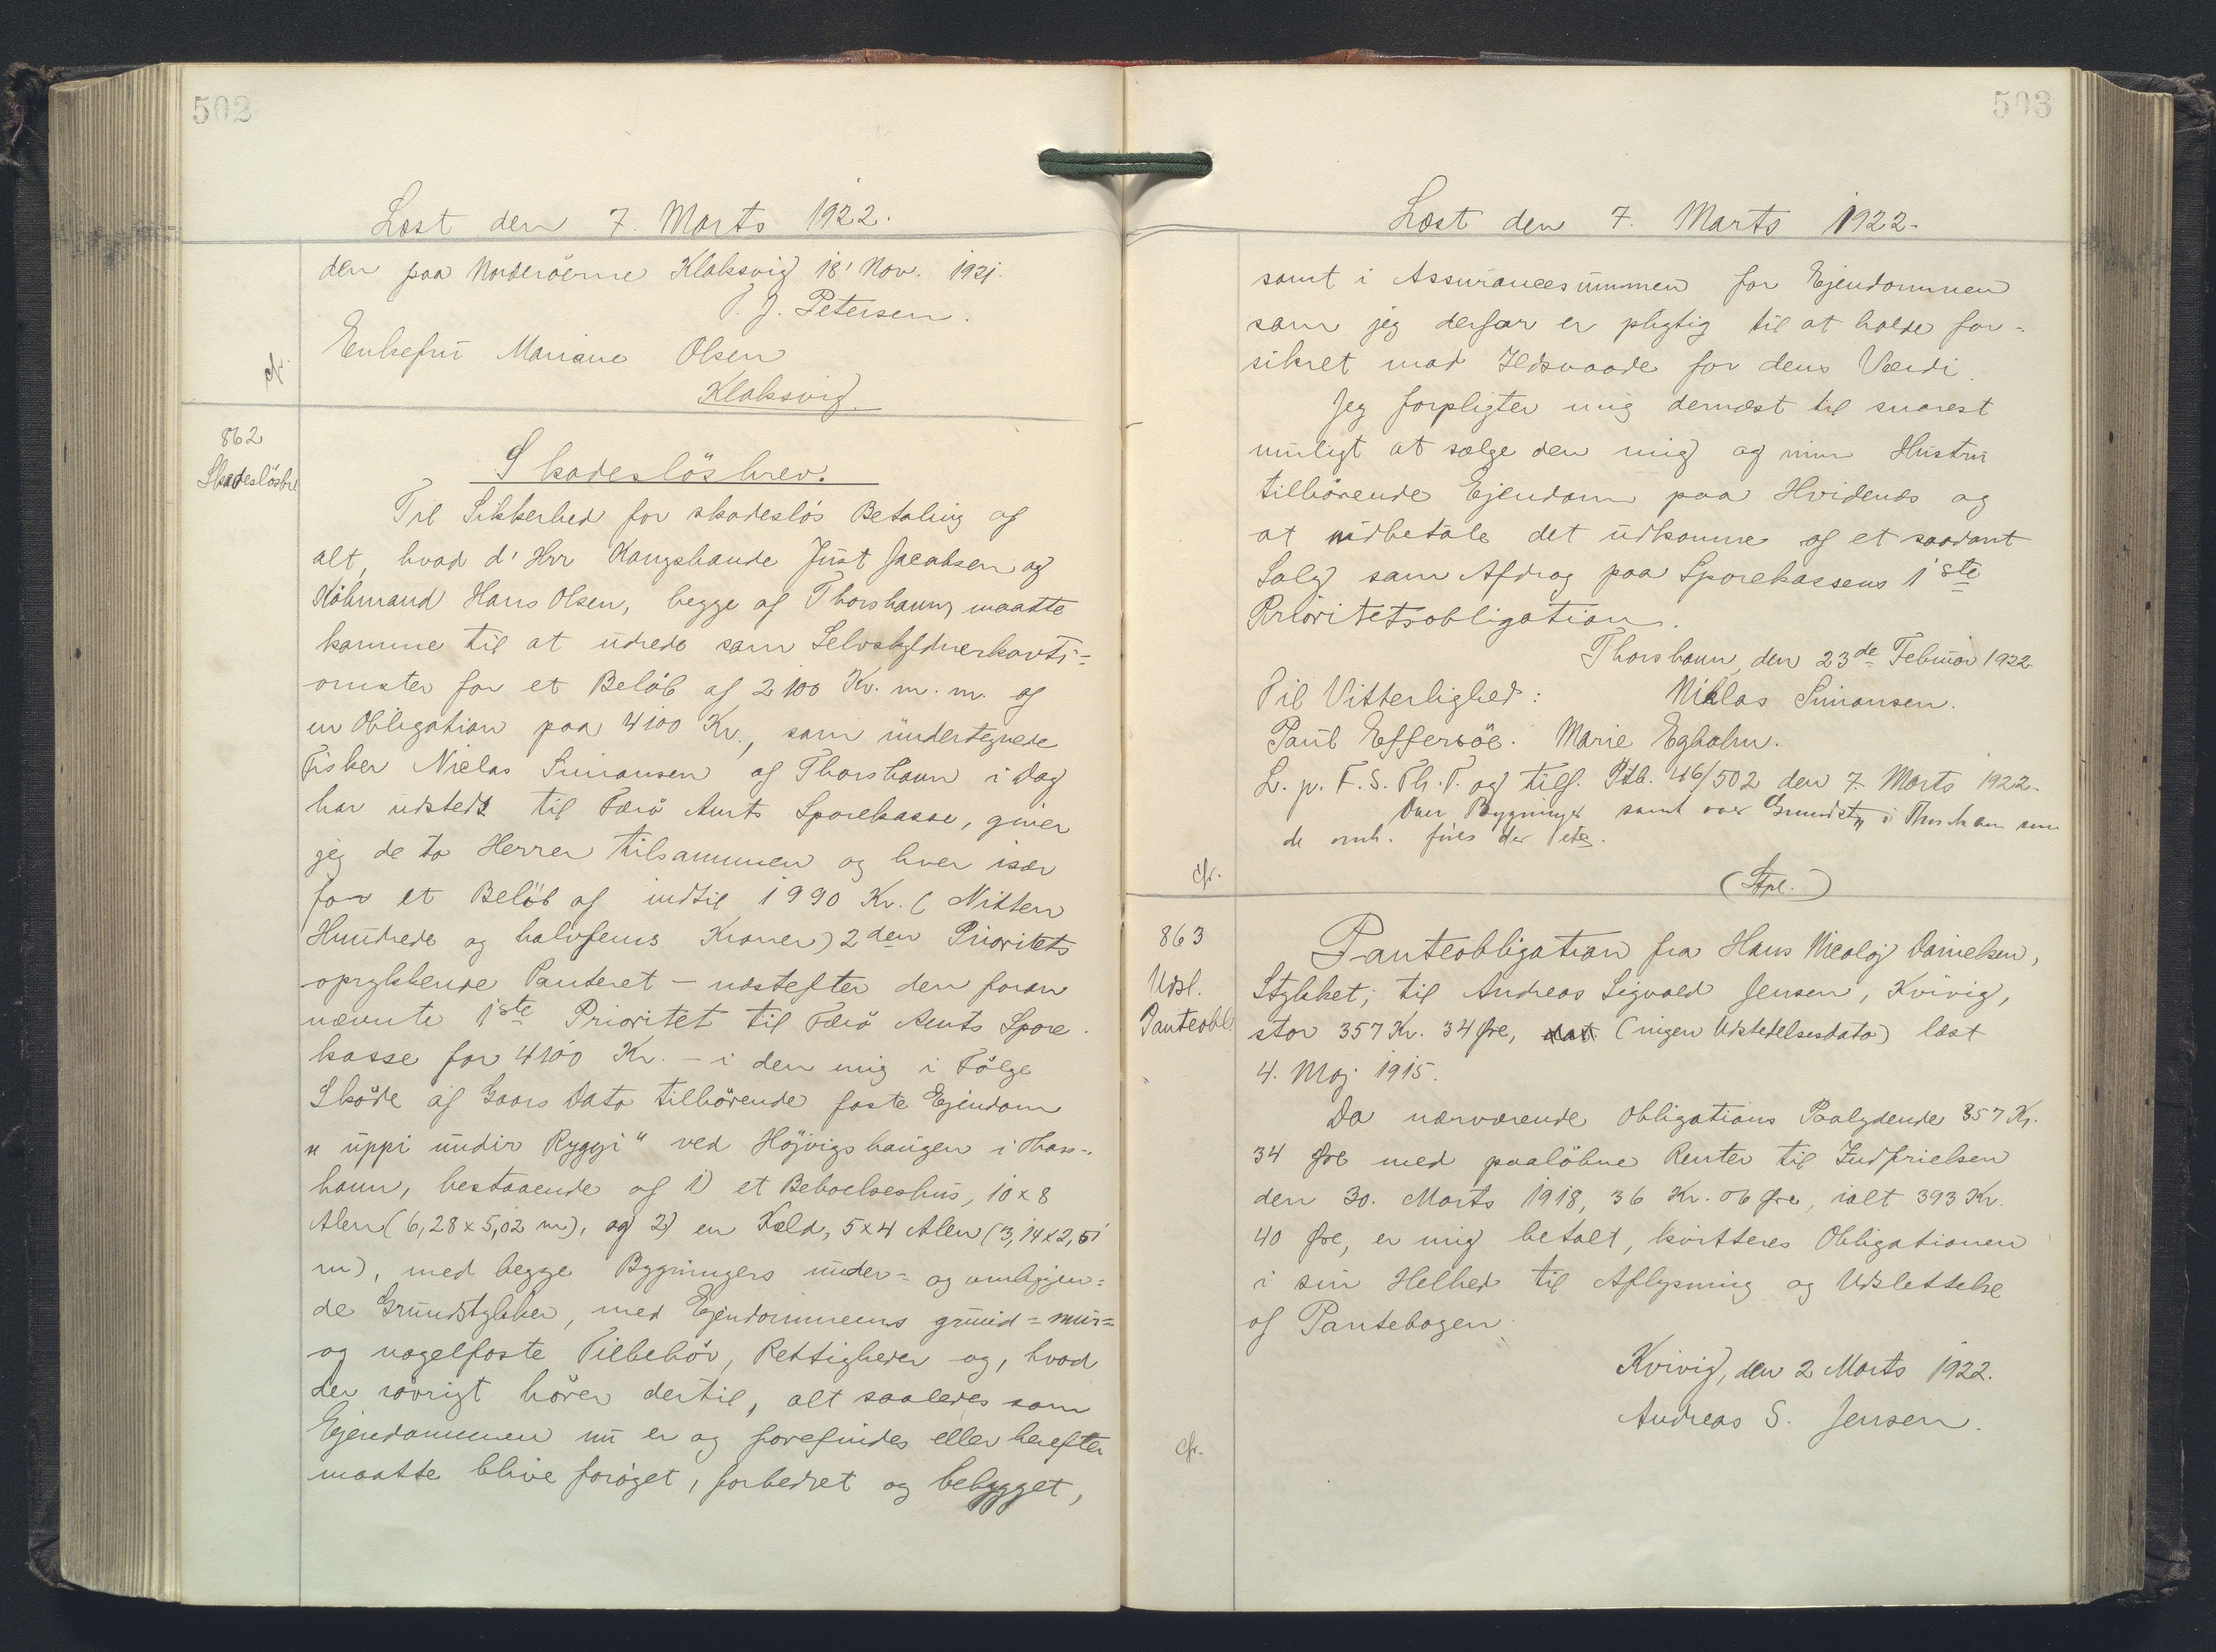 502
Læst den 7. Marts 1922.
den paa Norderöerne Klaksvig 18' Nov. 1921.
P. J. Petersen.
Enkefrü Mariane Olsen
Klaksvig.
cfr.
862
Skadeslösbr
Skadeslösbrev.
Til Sikkerhed for skadeslös Betaling af
alt, hvad d' Hrr Kongsbonde Just Jacobsen og
Köbmand Hans Olsen, begge af Thorshavn, maatte
komme til at üdrede som Selvskyldnerkavti-
onister for et Belöb af 2100 Kr. m. m. af
en Obligation paa 4100 Kr., som ündertegnede
Fisker Niclas Simonsen af Thorshavn i Dag
har üdstedt til Færö Amts Sparekasse, giver
jeg de to Herrer tilsammen og hver især
for et Belöb af indtil 1990 Kr. (Nitten
Hundrede og halvfems Kroner) 2den Prioritets
oprykkende Panteret – næstefter den foran
nævnte 1ste Prioritet til Færö Amts Spare-
kasse for 4100 Kr. – i den mig i Fölge
Sköde af Gaars Dato tilhörende faste Ejendom
"üppi ündir Ryggi" ved Höjvigshaügen i Thors-
havn, bestaaende af 1) et Beboelseshüs, 10 x 8
Alen (6,28 x 5,02 m), og 2) en Kæld, 5 x 4 Alen (3,14 x 2,51
m), med begge Bygningers ünder- og omliggen-
de Gründstykker, med Ejendommens gründ- mür-
og nagelfaste Tilbehör, Rettigheder og, hvad
der iövrigt hörer dertil, alt saaledes som
Ejendommen nü er og forefindes eller herefter
maatte blive foröget, forbedret og bebygget,
503
Læst den 7. Marts 1922.
samt i Assürancesümmen for Ejendommen
som jeg derfor er pligtig til at holde for-
sikret mod Ildsvaade for dens Værdi.
Jeg forpligter mig dernæst til snarest
müligt at sælge den mig og min Hüstrü
tilhörende Ejendom paa Hvidenæs og
at indbetale det üdkomne af et saadant
Salg som Afdrag paa Sparekassens 1ste
Prioritetsobligation.
Thorshavn, den 23de Febrüar 1922.
Til Vitterlighed: Niklas Simonsen.
Paül Effersöe. Marie Egholm.
L. p. F. S. Th. T. og tilf. Ptb. 46/502 den 7. Marts 1922.
Over Bygninger samt over Grundst. i Thorshavn som
de omh. fries der
cfr.
(Stpl.)
863
Udsl.
Panteobl
Panteobligation fra Hans Nicolaj Danielsen,
Stykket, til Andreas Sigvald Jensen, Kvivig,
stor 357 Kr. 34 Øre, dat. (ingen Udstedelsesdato) læst
4. Maj 1915.
Da nærværende Obligations Paalydende 357 Kr.
34 Øre med paalöbne Renter til Indfrielsen
den 30. Marts 1918, 36 Kr. 06 Øre, ialt 393 Kr.
40 Øre, er mig betalt, kvitteres Obligationen
i sin Helhed til Aflysning og Udslettelse
af Pantebogen.
Kvivig, den 2 Marts 1922.
Andreas S. Jensen.
cfr.